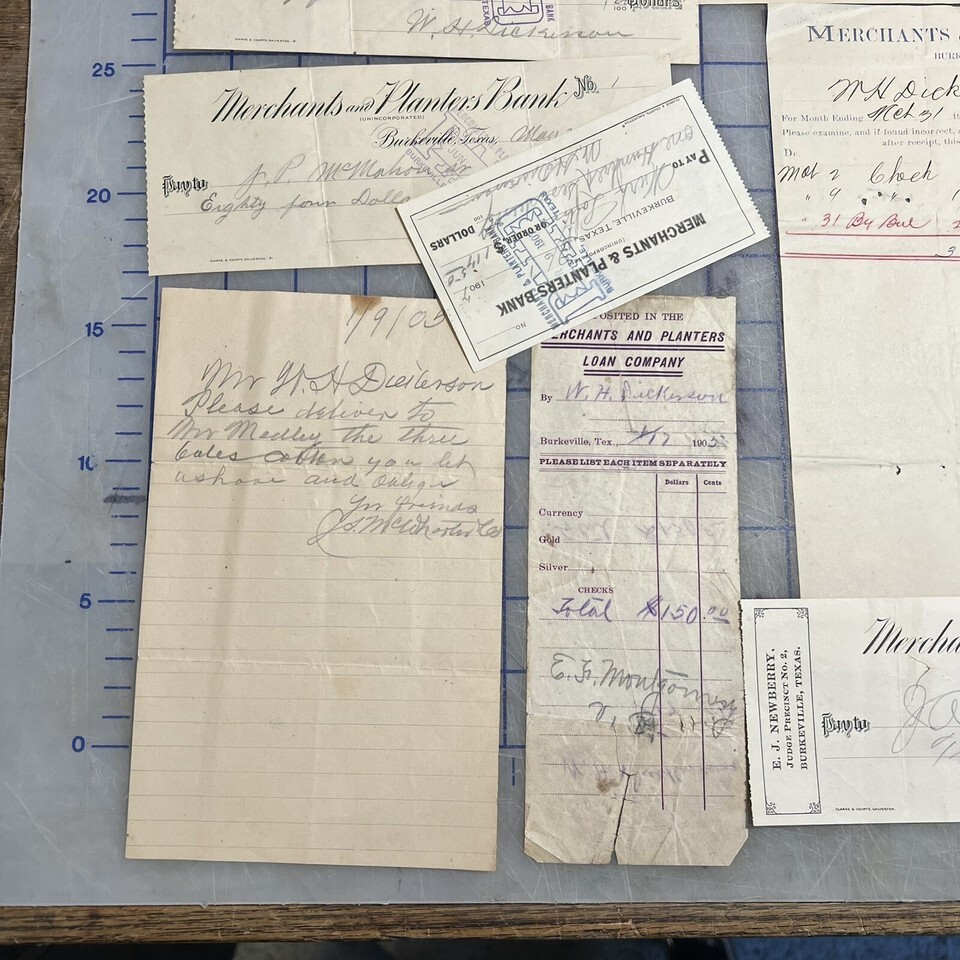 Dollars
W. H. Dickerson
CLARKE & COURTS, GALVESTON
Merchants and Planters Bank No. 1
(UNINCORPORATED)
Burkeville, Texas,
Pay to J. P. McMahon
Eighty four Dolla
MERCHANTS & PLANTERS BANK
(UNINCORPORATED)
BURKEVILLE, TEXAS,
190
NO.
PAY TO
OR ORDER
One Hundred
DOLLARS
100
MERCHANTS &
BURK
W H Dick
For Month Ending Mch 31
Please examine, and if found incorrect,
after receipt, this
Dr.
Mch 2 Check
" 9 " "
31 By Bal
1/9/05
Mr W. H. Dickerson
Please deliver to
Mr Medley the three
bales cotton you let
ashore and oblige
Yr friends
J. S. McWhorter Co
POSITED IN THE
MERCHANTS AND PLANTERS
LOAN COMPANY
By W. H. Dickerson
Burkeville, Tex., 1905
PLEASE LIST EACH ITEM SEPARATELY
Dollars Cents
Currency
Gold
Silver
CHECKS
Total $150.00
E. J. NEWBERRY,
JUDGE PRECINCT NO. 2,
BURKEVILLE, TEXAS.
Mercha
Pay to
CLARKE & COURTS, GALVESTON
25
20
15
10
5
0